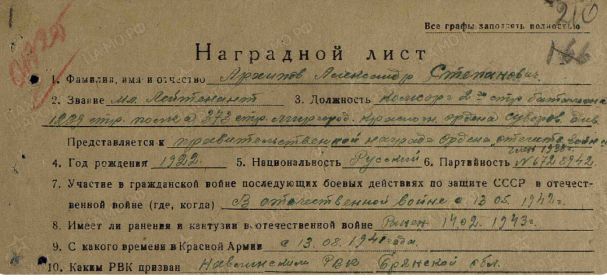 1
Все графы заполнять полностью
210
166
Наградной лист
1. Фамилия, имя и отчество Архипов Александр Степанович.
2. Звание мл. Лейтенант 3. Должность Комсорг 2го стр. батальона
стр. полка 273 стр. ордена
Представляется к правительственной награде Ордена
4. Год рождения 1922. 5. Национальность Русский 6. Партийность
7. Участие в гражданской войне последующих боевых действиях по защите СССР в отечест-
венной войне (где, когда) В отечественной войне с 13.05.1942г.
8. Имеет ли ранения и контузии в отечественной войне Ранен 14.02.1943г.
9. С какого времени в Красной Армии с 13.08.1940 года.
10. Каким РВК призван РВК Брянской обл.